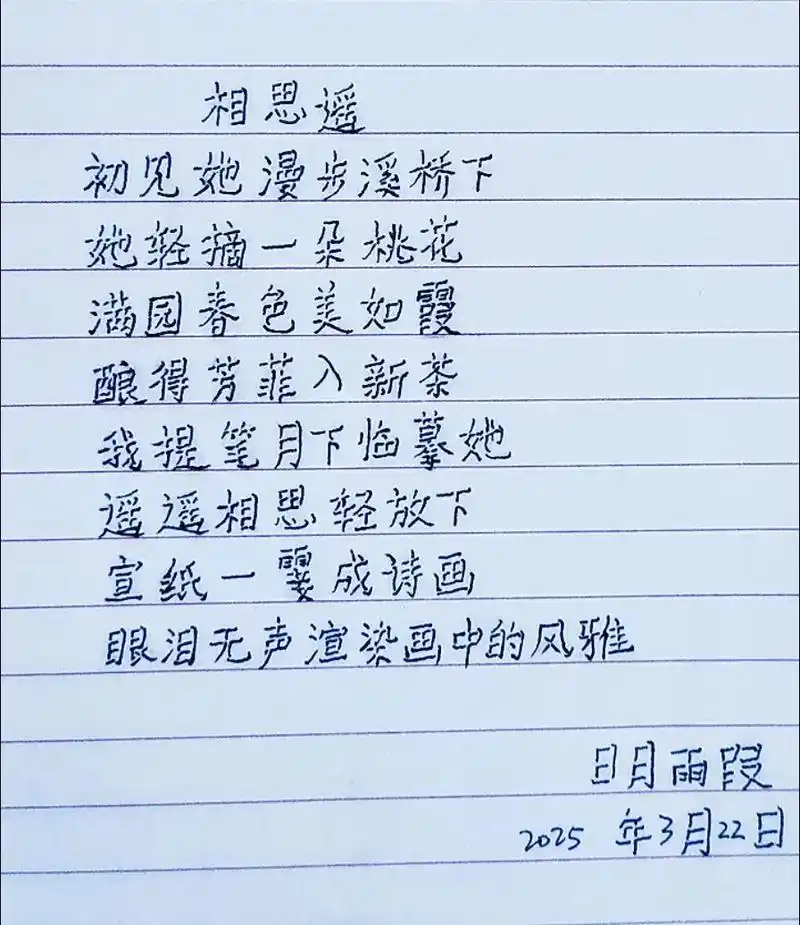 相思遥
初见她漫步溪桥下
她轻摘一朵桃花
满园春色美如霞
酿得芳菲入新茶
我提笔月下临摹她
遥遥相思轻放下
宣纸一霎成诗画
眼泪无声渲染画中的风雅
日月雨段
2025 年3月22日